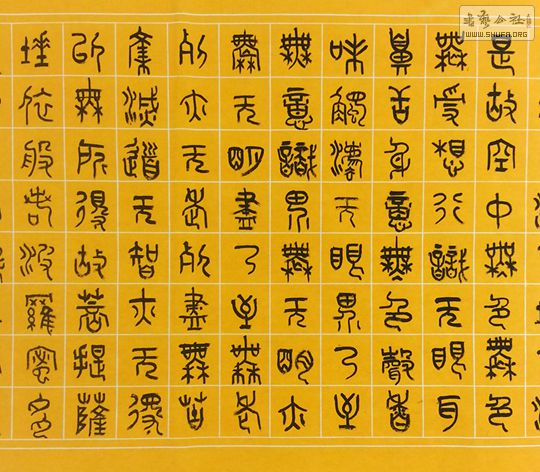 書藝公社
WWW.SHUFA.ORG
是故空中無色無色
無受想行識无眼耳
鼻舌身意無色聲香
味觸灋无眼界乃至
無意識界無无明亦
無无明盡乃至無老
死亦无老死盡無苦
集滅道无智亦无得
以無所得故菩提薩
埵依般若波羅蜜多